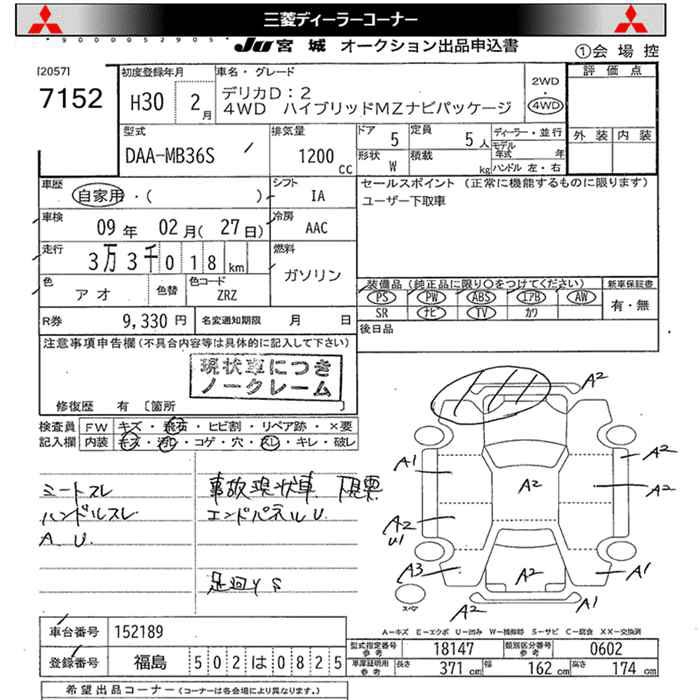 三菱ディーラーコーナー
9000052905
JU 宮城 オークション出品申込書
①会場控
[2057]
7152
初度登録年月
H30 2月
車名・グレード
デリカD:2
4WD ハイブリッドMZナビパッケージ
2WD
・
4WD
評価点
外装 内装
型式
DAA-MB36S
排気量
1200 cc
ドア 5
定員 5人
形状 W
積載 kg
ディーラー・並行
モデル年式 年
ハンドル 左・右
車歴
自家用・( )
シフト
IA
セールスポイント (正常に機能するものに限ります)
ユーザー下取車
車検
09年 02月(27日)
冷房
AAC
走行
3万3千018km
燃料
ガソリン
色
アオ
色替
色コード
ZRZ
装備品(純正品に限り○をつけてください)
新車保証書
PS PW ABS エアB AW
SR ナビ TV カワ
有・無
R券 9,330円
名変通知期限 月 日
後日品
注意事項申告欄(不具合内容等は具体的に記入して下さい)
現状車につき
ノークレーム
修復歴 有 [箇所
検査員記入欄
FW キズ・飛石・ヒビ割・リペア跡・×要
内装 キズ・汚れ・コゲ・穴・スレ・キレ・破レ
シートスレ
ハンドルスレ
A.U.
事故現状車 下見要
エンドパネルU.
足回りS
A2
A1
A2
A2
A2
A2
U1
A3
A2
A1
A2
A1
スペア
A-キズ E-エクボ U-凹み W-補修跡 S-サビ C-腐食 XX-交換済
車台番号 152189
登録番号 福島 502は0825
型式指定番号 参考 18147
類別区分番号 参考 0602
車庫証明用 参考 長さ 371cm 幅 162cm 高さ 174cm
希望出品コーナー(コーナーは各会場により異なります。)